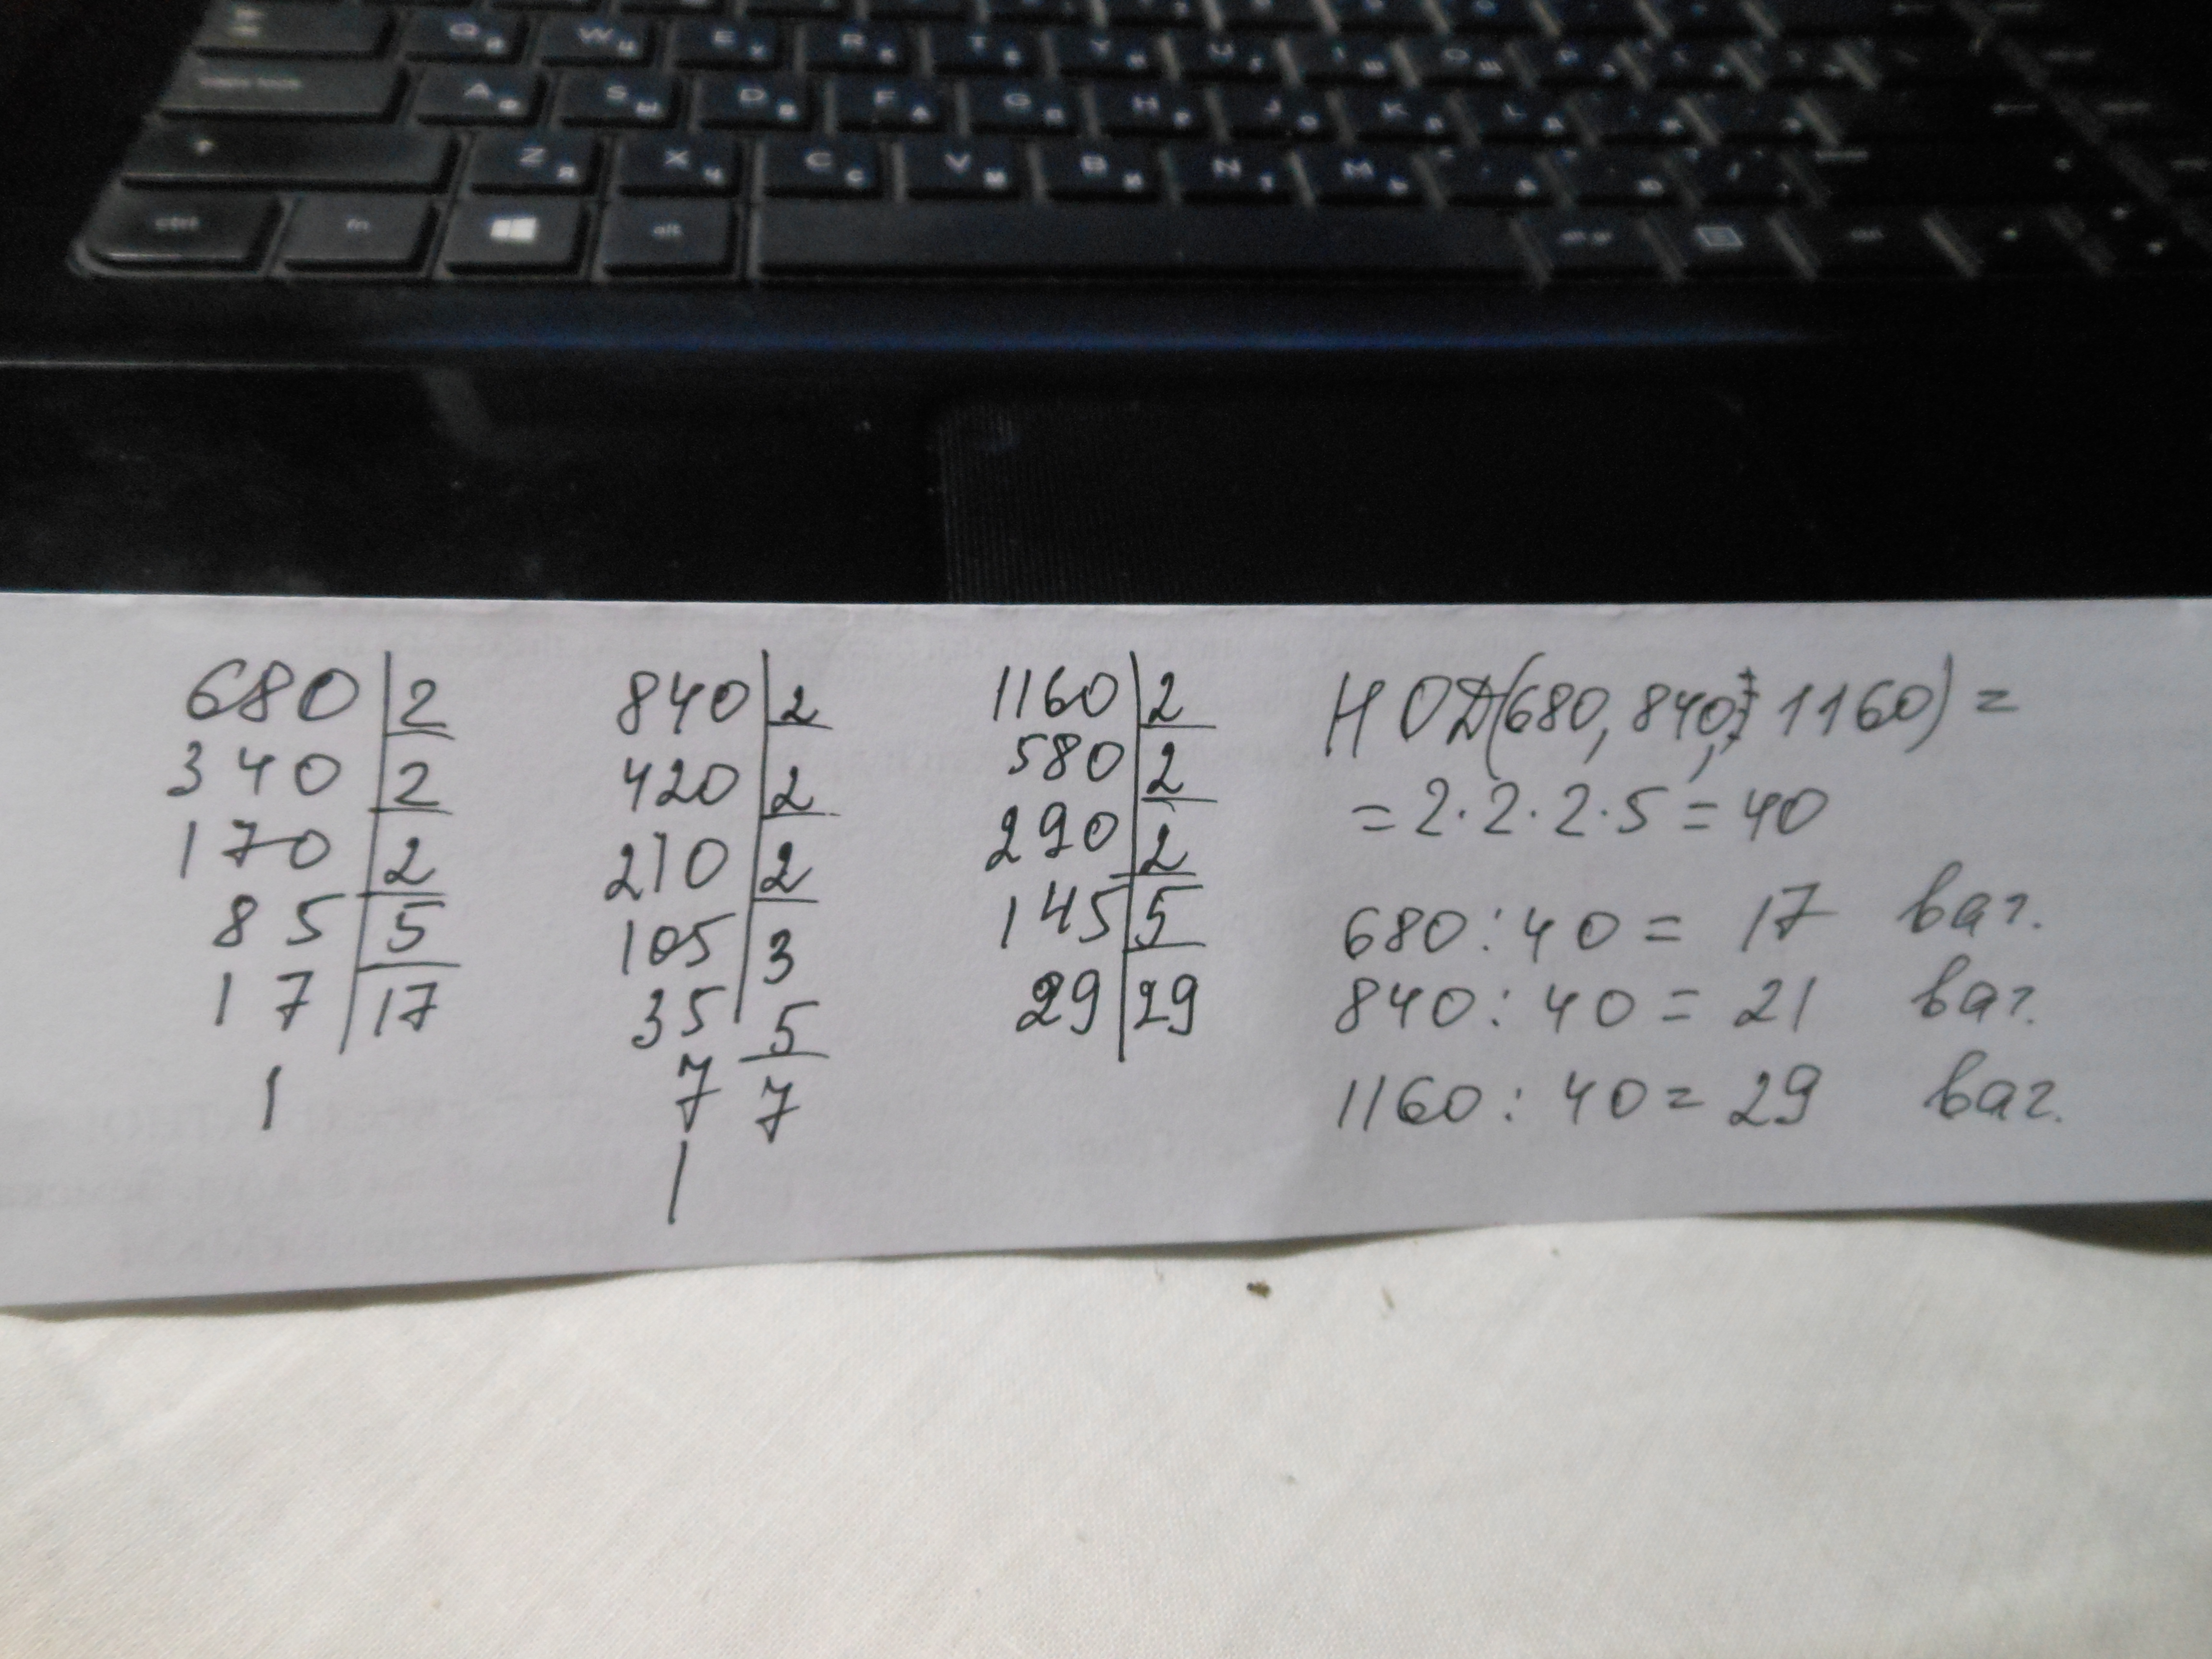 Q Й W Ц E У R К T Е Y Н U Г I Ш O Щ P З
caps lock A Ф S Ы D В F А G П H Р J О K Л L Д
Z Я X Ч C С V М B И N Т M Ь Б Ю
ctrl fn alt alt gr ctrl
680 2
340 2
170 2
85 5
17 17
1
840 2
420 2
210 2
105 3
35 5
7 7
1
1160 2
580 2
290 2
145 5
29 29
НОД(680, 840, 1160) =
= 2·2·2·5 = 40
680 : 40 = 17 ваг.
840 : 40 = 21 ваг.
1160 : 40 = 29 ваг.